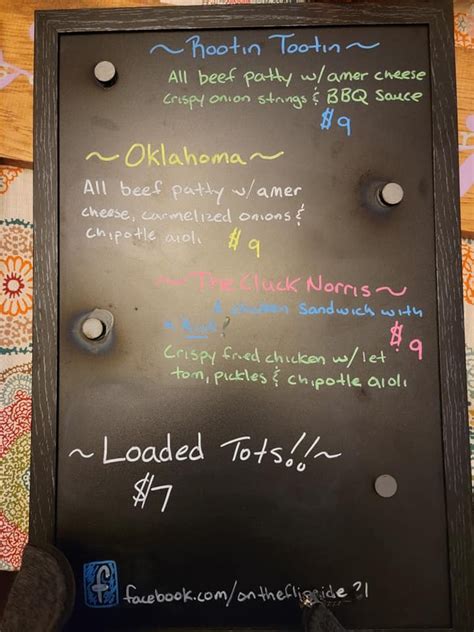 ~ Rootin Tootin ~
All beef patty w/ amer cheese
crispy onion strings & BBQ Sauce
$9
~ Oklahoma ~
All beef patty w/ amer
cheese, carmelized onions &
chipotle aioli $9
~ The Cluck Norris ~
A chicken sandwich with
a kick!
$9
Crispy fried chicken w/ let
tom, pickles & chipotle aioli
~ Loaded Tots!! ~
$7
f facebook.com/ontheflipside